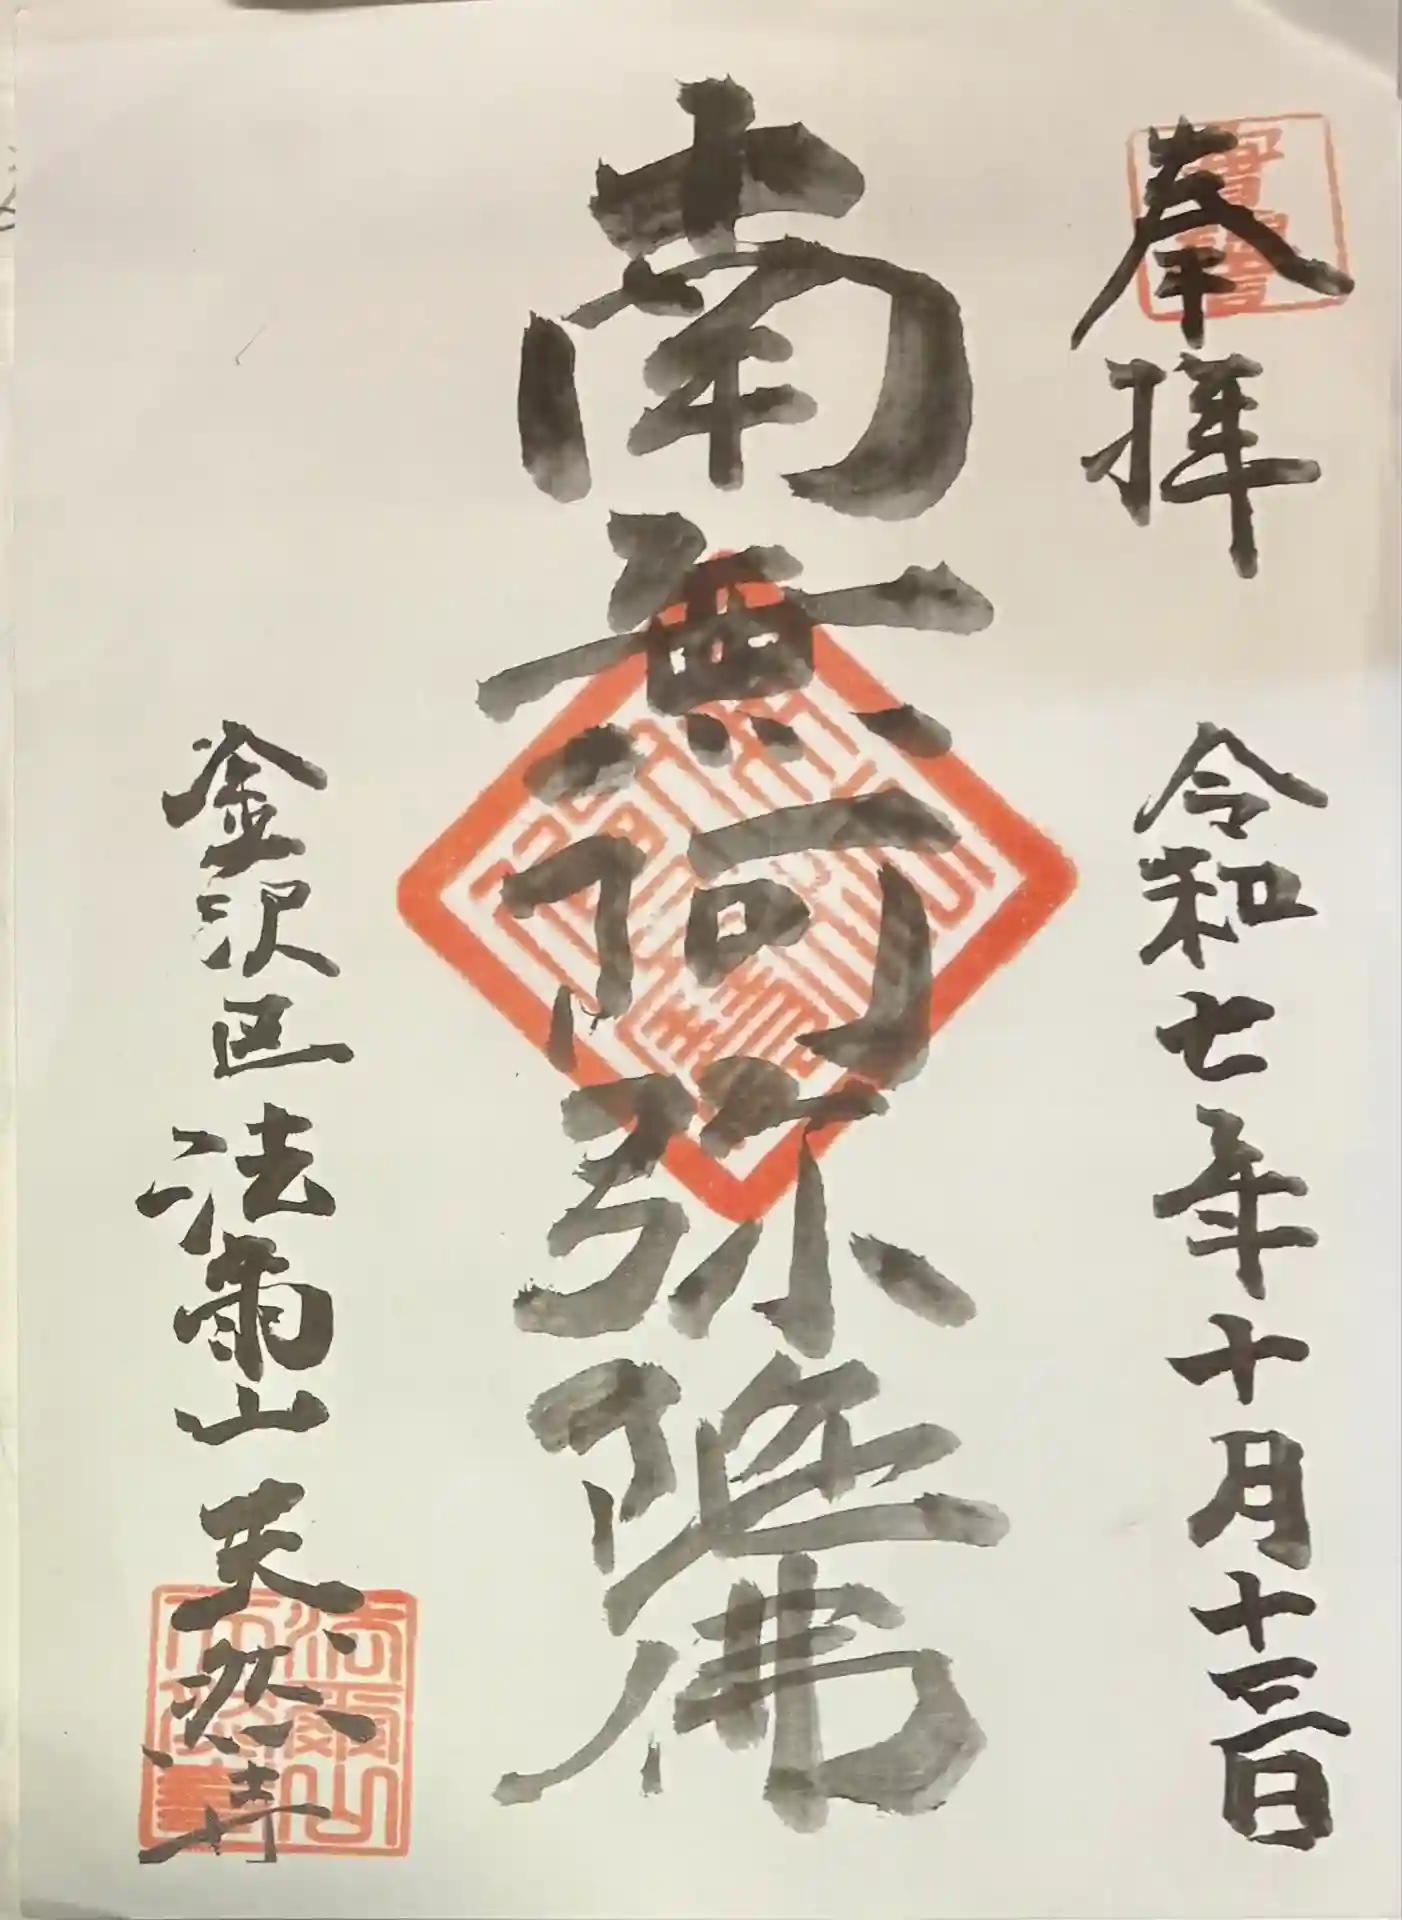 奉拝
令和七年十月十三日
南無阿弥陀佛
金沢区法爾山天然寺
法爾山天然寺